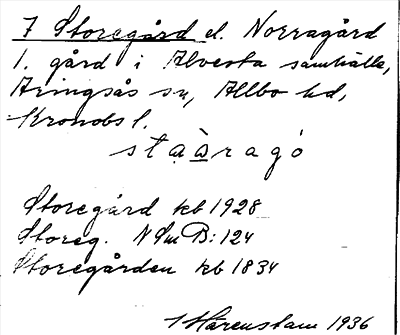 7 Storegård el. Norragård
1. gård i Alvesta samhälle,
Aringsås sn, Allbo hd,
Kronobs l.
staàragó
Storegård kb 1928
Storeg. NSmB:124
Storegården kb 1834
Härenstam 1936